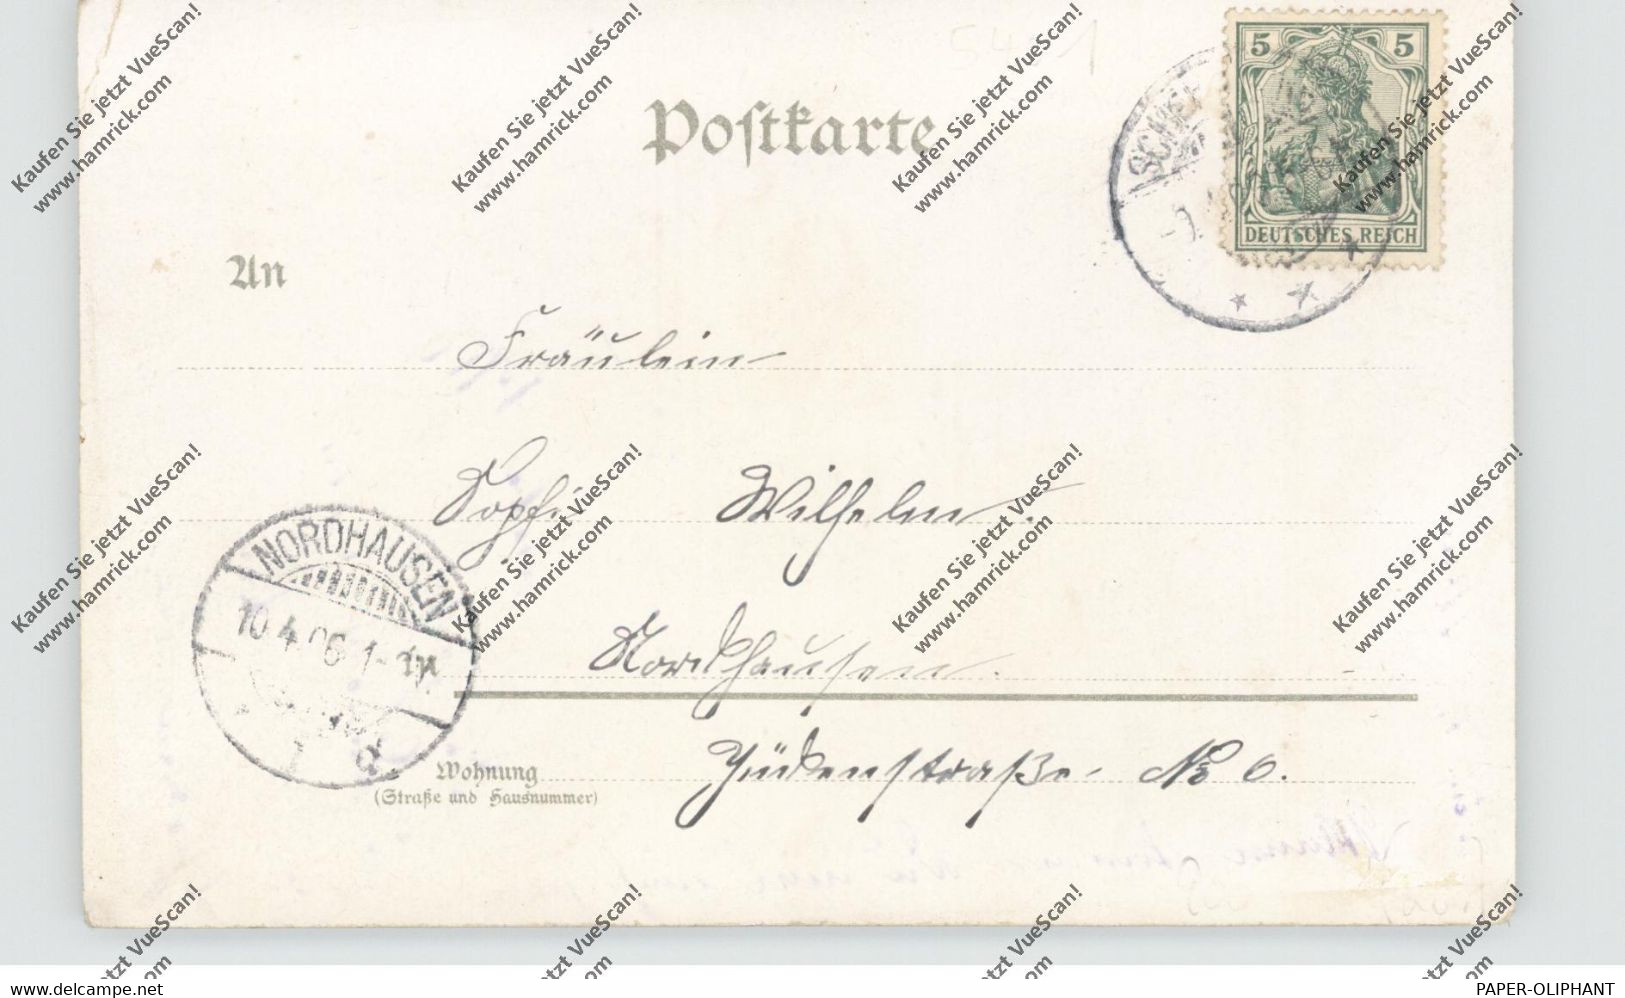 54 1
Postkarte
5 5
DEUTSCHES REICH
An
Fräulein
Sophie Wilhelm.
NORDHAUSEN
10.4.06 1-
Nordhausen.
Wohnung
(Straße und Hausnummer)
Jüdenstraße № 6.
Kaufen Sie jetzt VueScan!
www.hamrick.com
www.delcampe.net
PAPER-OLIPHANT